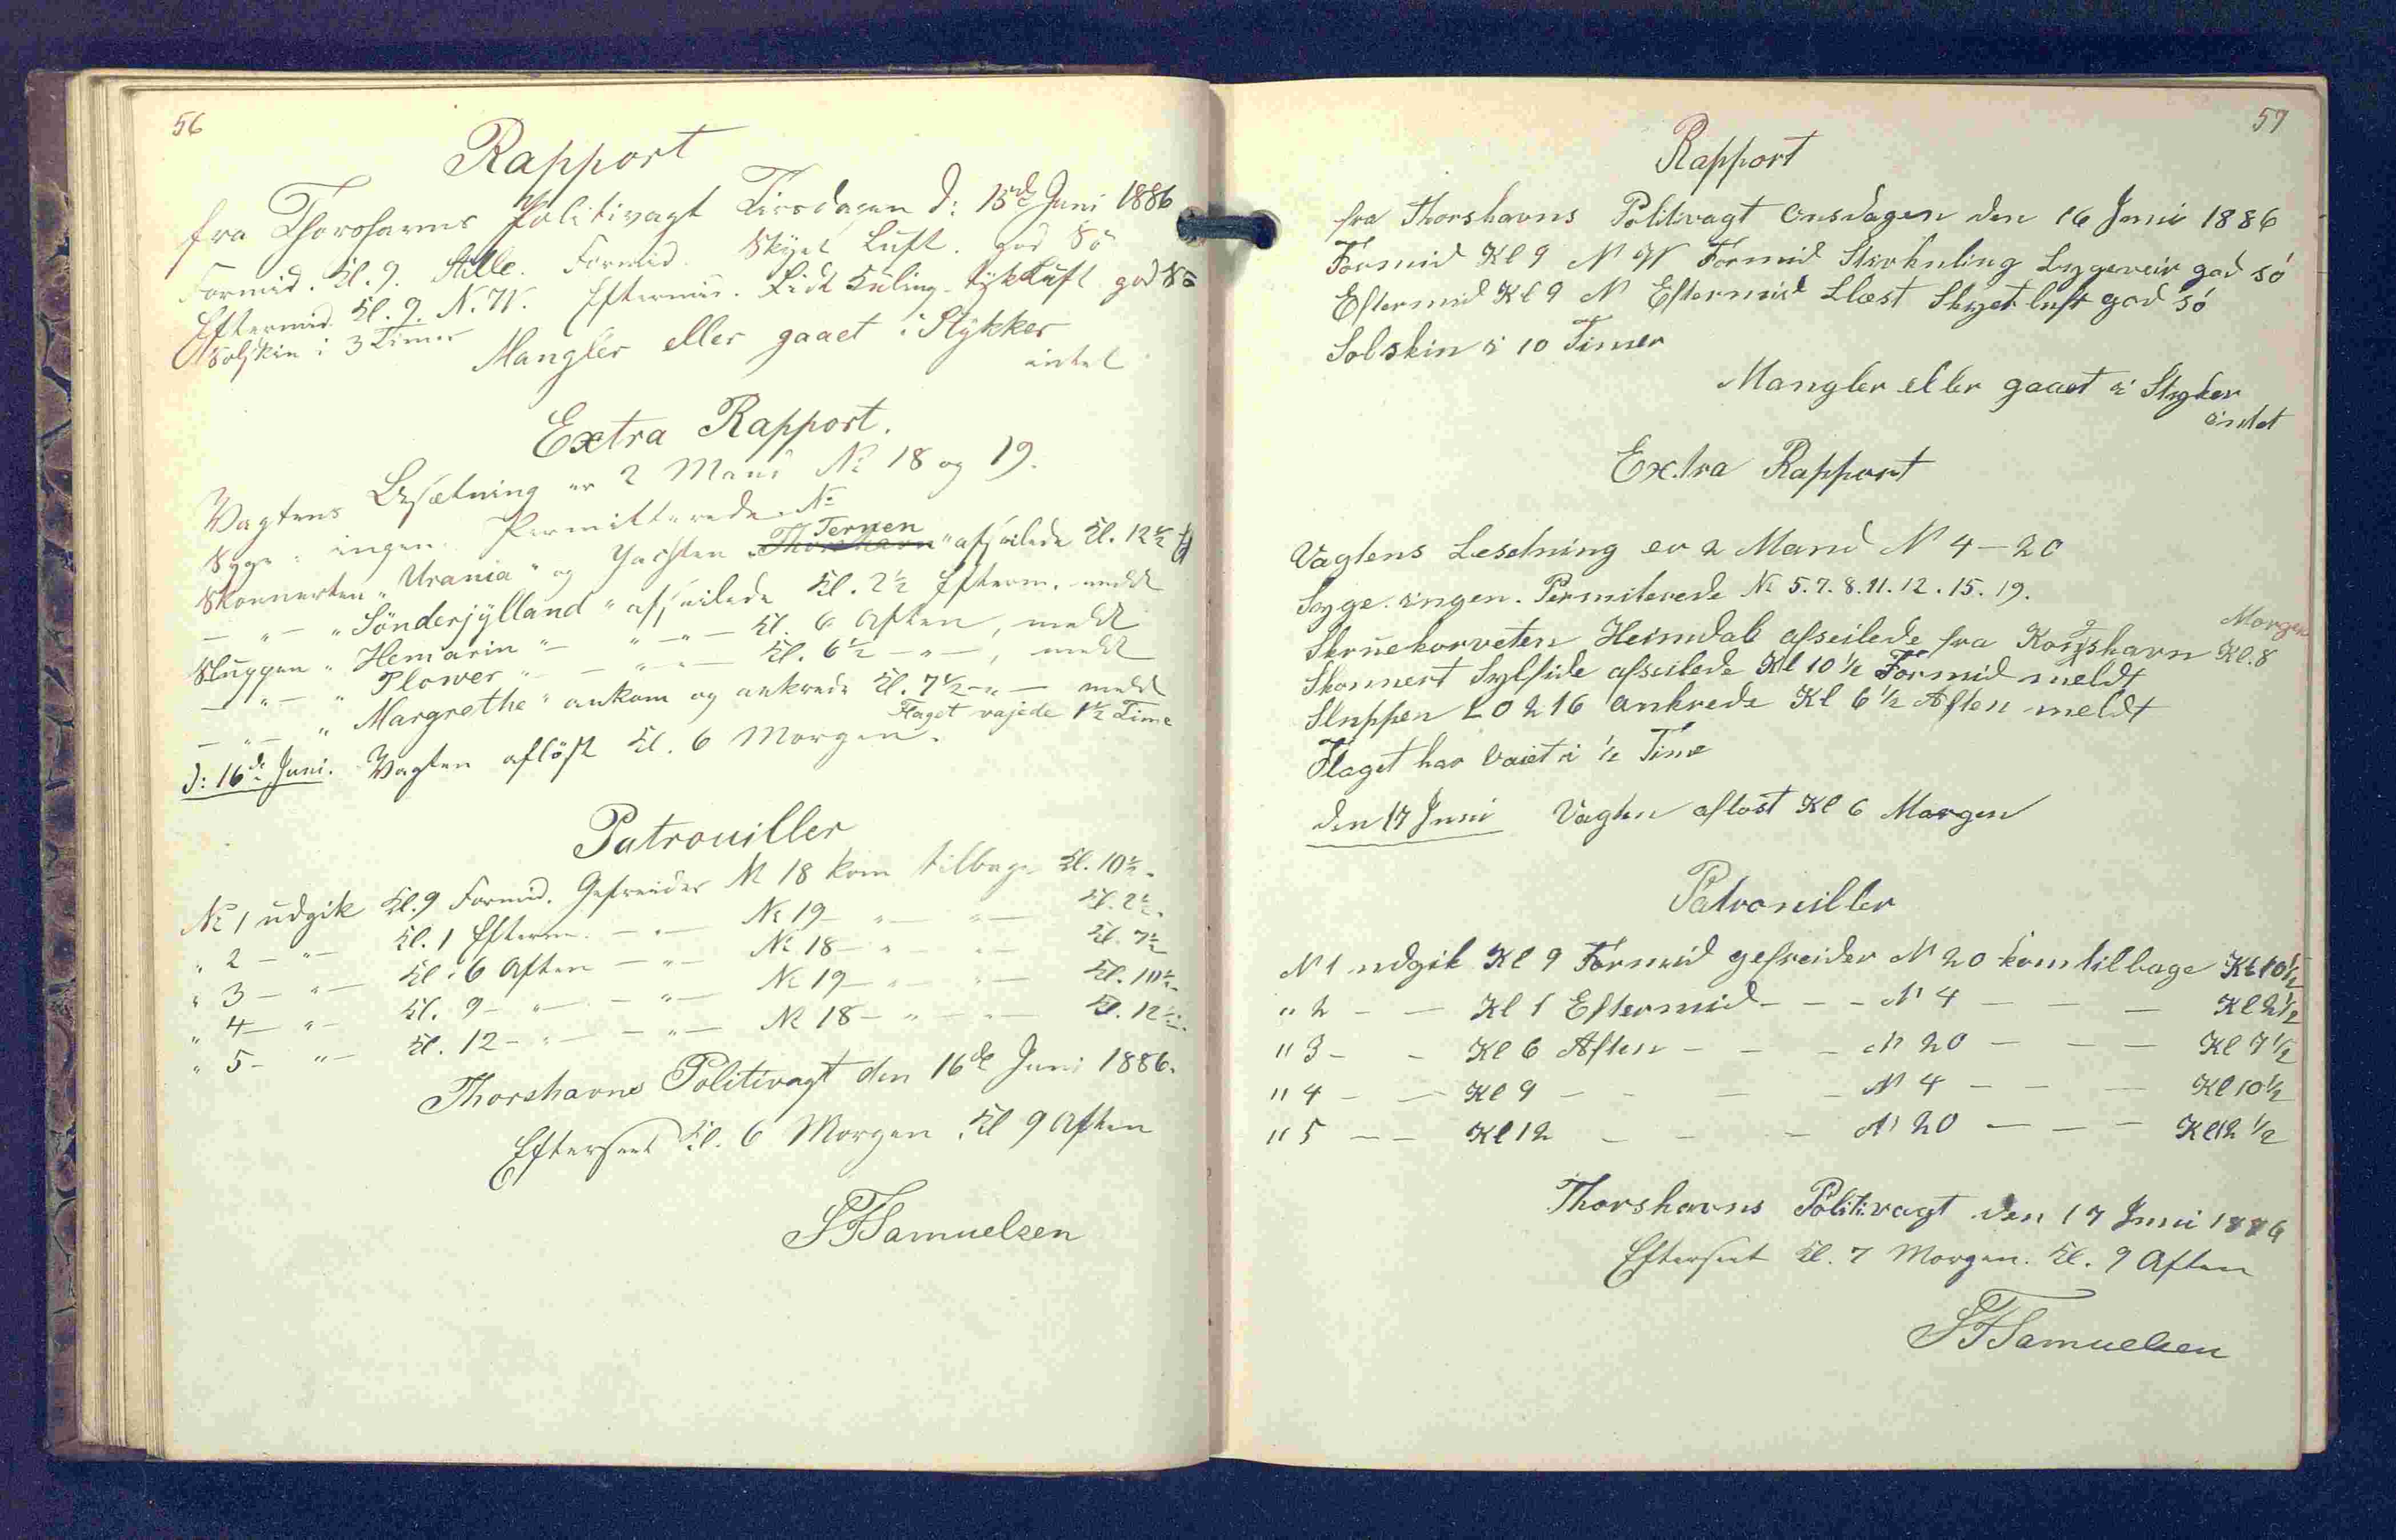 56
Rapport
fra Thorshavns Politivagt Tirsdagen d: 15de Juni 1886
Formid. Kl. 9. Stille. Formid. Skyet Luft. god Sö
Eftermid. Kl. 9. N.W. Eftermid. Lidt Kuling tyk Luft god Sö
Solskin i 3 Timer
Mangler eller gaaet i Stykker
intet
Extra Rapport.
Vagtens Besætning er 2 Mand No 18 og 19.
Syge: ingen. Permitterede No
Skonnerten "Urania" og Jachten "Thorshavn Ternen" afseilede Kl. 12½
— " — "Sönderjylland" afseilede Kl. 2½ Efterm. meldt
Sluppen "Hemarin" — " — " — Kl. 6 Aften, meldt
— " — "Plover" — " — " — Kl. 6½ — " —, meldt
— " — "Margrethe" ankom og ankrede Kl. 7½ — " — meldt
Flaget vajede 1½ Time
d: 16de Juni. Vagten aflöst Kl. 6 Morgen.
Patrouiller
No 1 udgik Kl. 9 Formid. Gefreider No 18 kom tilbage Kl. 10½.
" 2 — " — Kl. 1 Efterm. — " — No 19 — " — " — Kl. 2½.
" 3 — " — Kl. 6 Aften — " — No 18 — " — " — Kl. 7½
" 4 — " — Kl. 9 — " — — " — No 19 — " — " — Kl. 10½.
" 5 — " — Kl. 12 — " — — " — No 18 — " — " — Kl. 12½.
Thorshavns Politivagt den 16de Juni 1886.
Efterseet Kl. 6 Morgen. Kl 9 Aften
SFSamuelsen
57
Rapport
fra Thorshavns Politivagt Onsdagen den 16 Juni 1886
Formid Kl 9 N W Formid Stivkuling Bygeveir god sö
Eftermid Kl 9 N Eftermid Blæst Skyet luft god sö
Solskin i 10 Timer
Mangler eller gaaet i Styker
indet
Extra Rapport
Vagtens Besetning er 2 Mand N 4 — 20
Syge. ingen. Permiterede No 5. 7. 8. 11. 12. 15. 19.
Morgen
Skruekorveten Heimdal afseilede fra Kongshavn Kl. 8
Skonnert Sylfide afseilede Kl 10 ½ Formid meldt
Sluppen LO 216 ankrede Kl 6 ½ Aften meldt
Flaget har vaiet i ½ Time
den 17 Juni Vagten aflöst Kl 6 Morgen
Patrouiller
N 1 udgik Kl 9 Formid gefreider N 20 kom tilbage Kl 10½
" 2 — — Kl 1 Eftermid — — — N 4 — — — Kl 2½
" 3 — — Kl 6 Aften — — — N 20 — — — Kl 7½
" 4 — — Kl 9 — — — — N 4 — — — Kl 10½
" 5 — — Kl 12 — — — N 20 — — — Kl 12 ½
Thorshavns Politivagt den 17 Juni 1886
Efterseet Kl. 7 Morgen. Kl. 9 Aften
SFSamuelsen